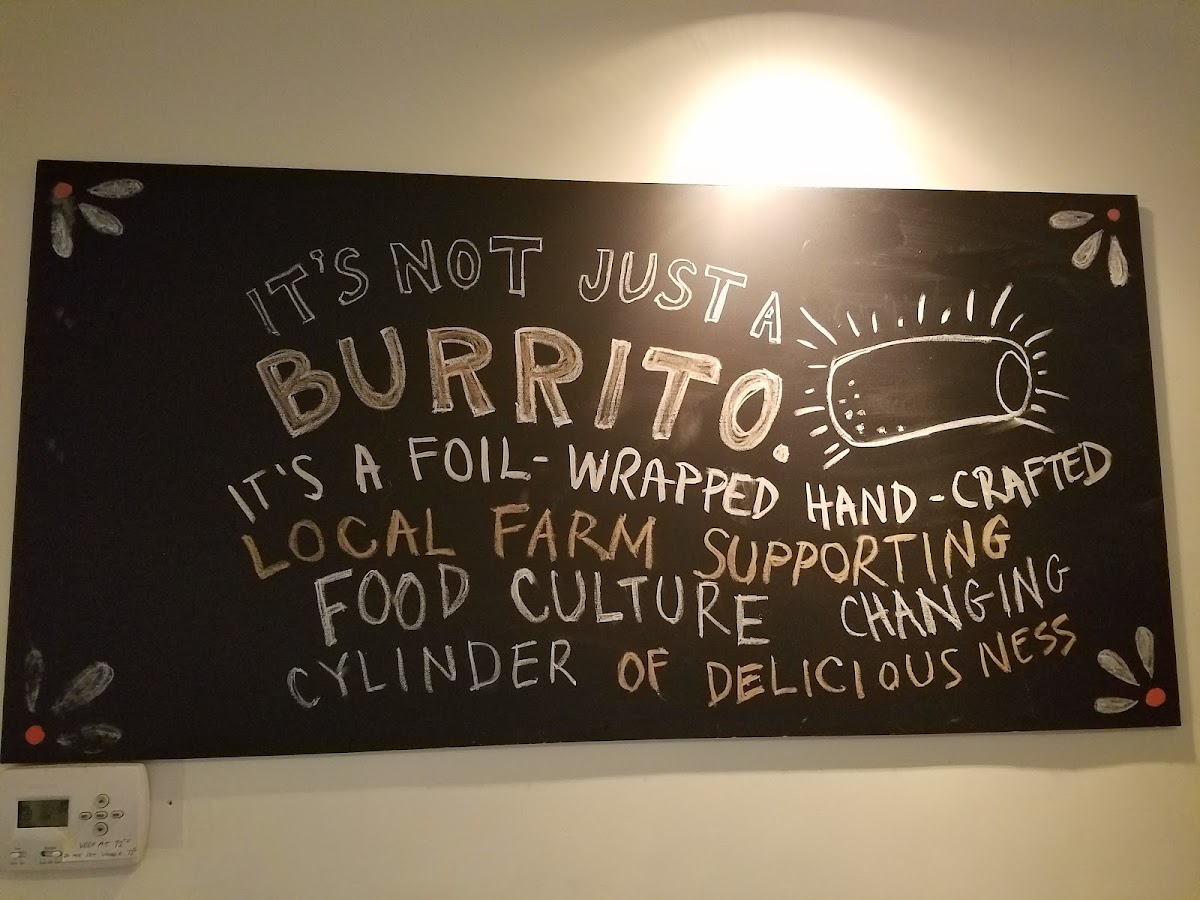 IT'S NOT JUST A
BURRITO.
IT'S A FOIL-WRAPPED HAND-CRAFTED
LOCAL FARM SUPPORTING
FOOD CULTURE CHANGING
CYLINDER OF DELICIOUSNESS
KEEP AT 72°